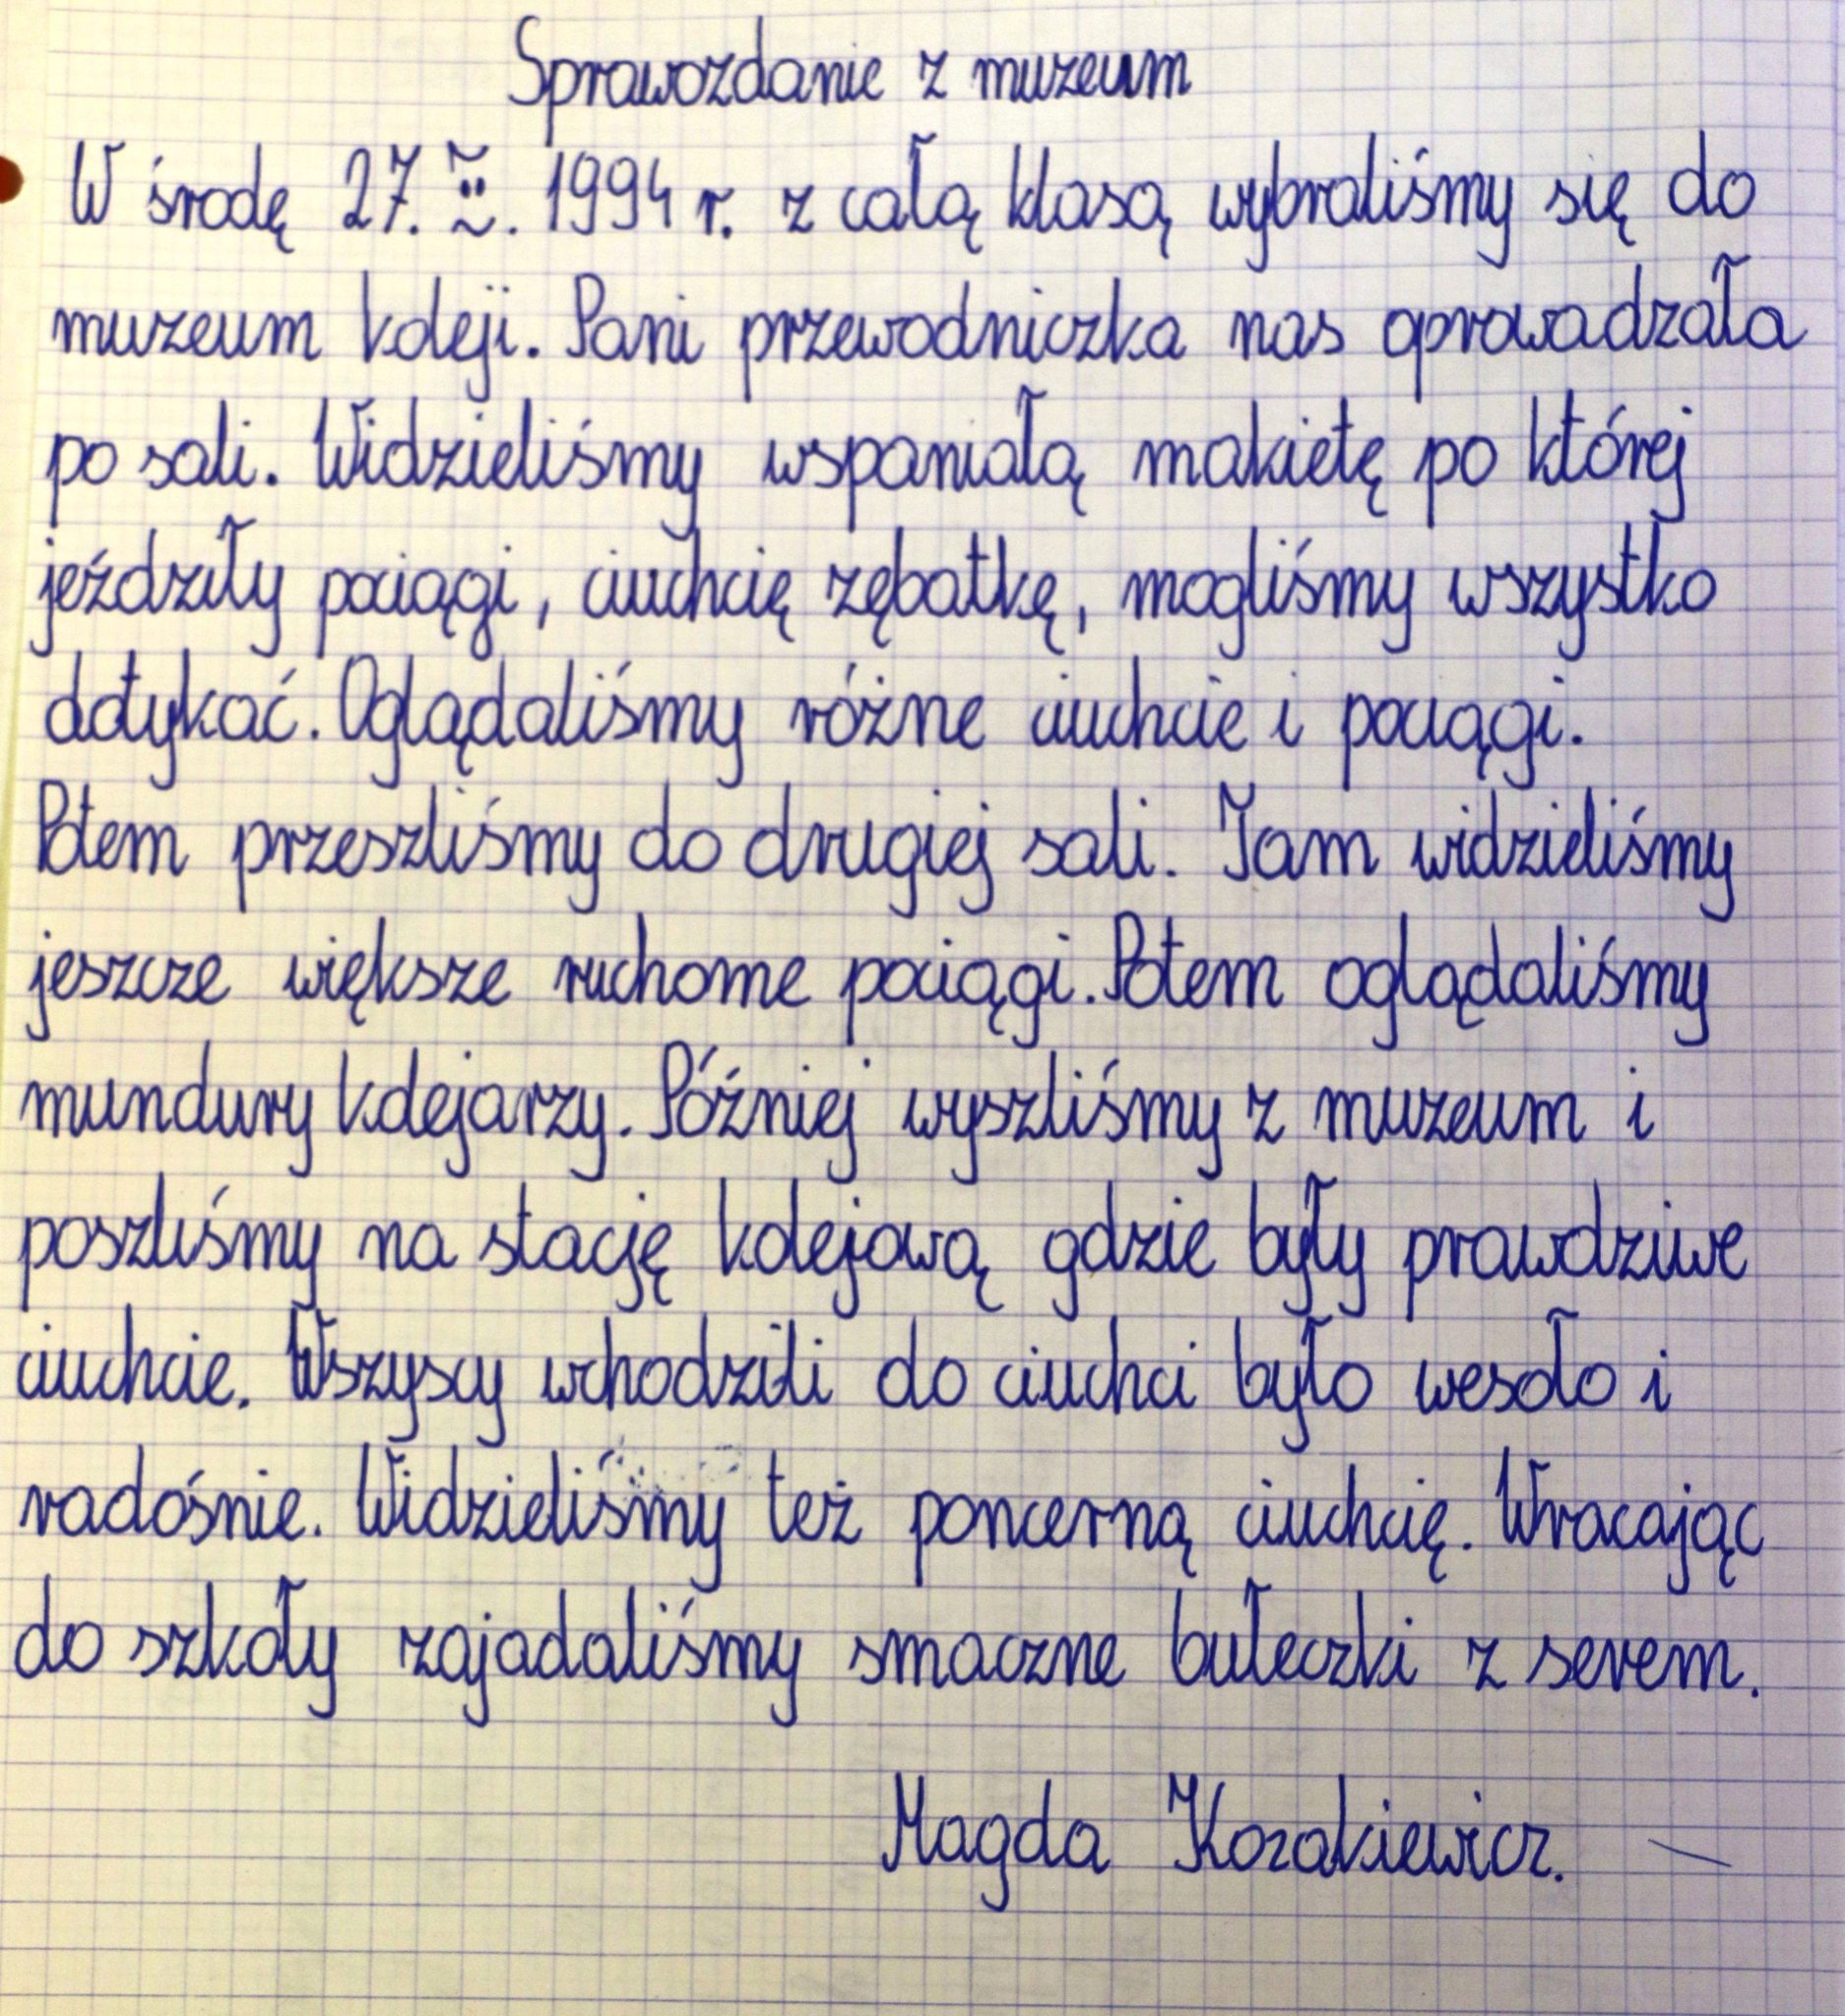 Sprawozdanie z muzeum
W środę 27. IV. 1994 r. z całą klasą wybraliśmy się do
muzeum koleji. Pani przewodniczka nas oprowadzała
po sali. Widzieliśmy wspaniałą makietę po której
jeździły pociągi, ciuchcię zębatkę, mogliśmy wszystko
dotykać. Oglądaliśmy różne ciuchcie i pociągi.
Potem przeszliśmy do drugiej sali. Tam widzieliśmy
jeszcze większe ruchome pociągi. Potem oglądaliśmy
mundury kolejarzy. Później wyszliśmy z muzeum i
poszliśmy na stację kolejową gdzie były prawdziwe
ciuchcie. Wszyscy wchodzili do ciuchci było wesoło i
radośnie. Widzieliśmy też poncerną ciuchcię. Wracając
do szkoły zajadaliśmy smaczne bułeczki z serem.
Magda Kozakiewicz.